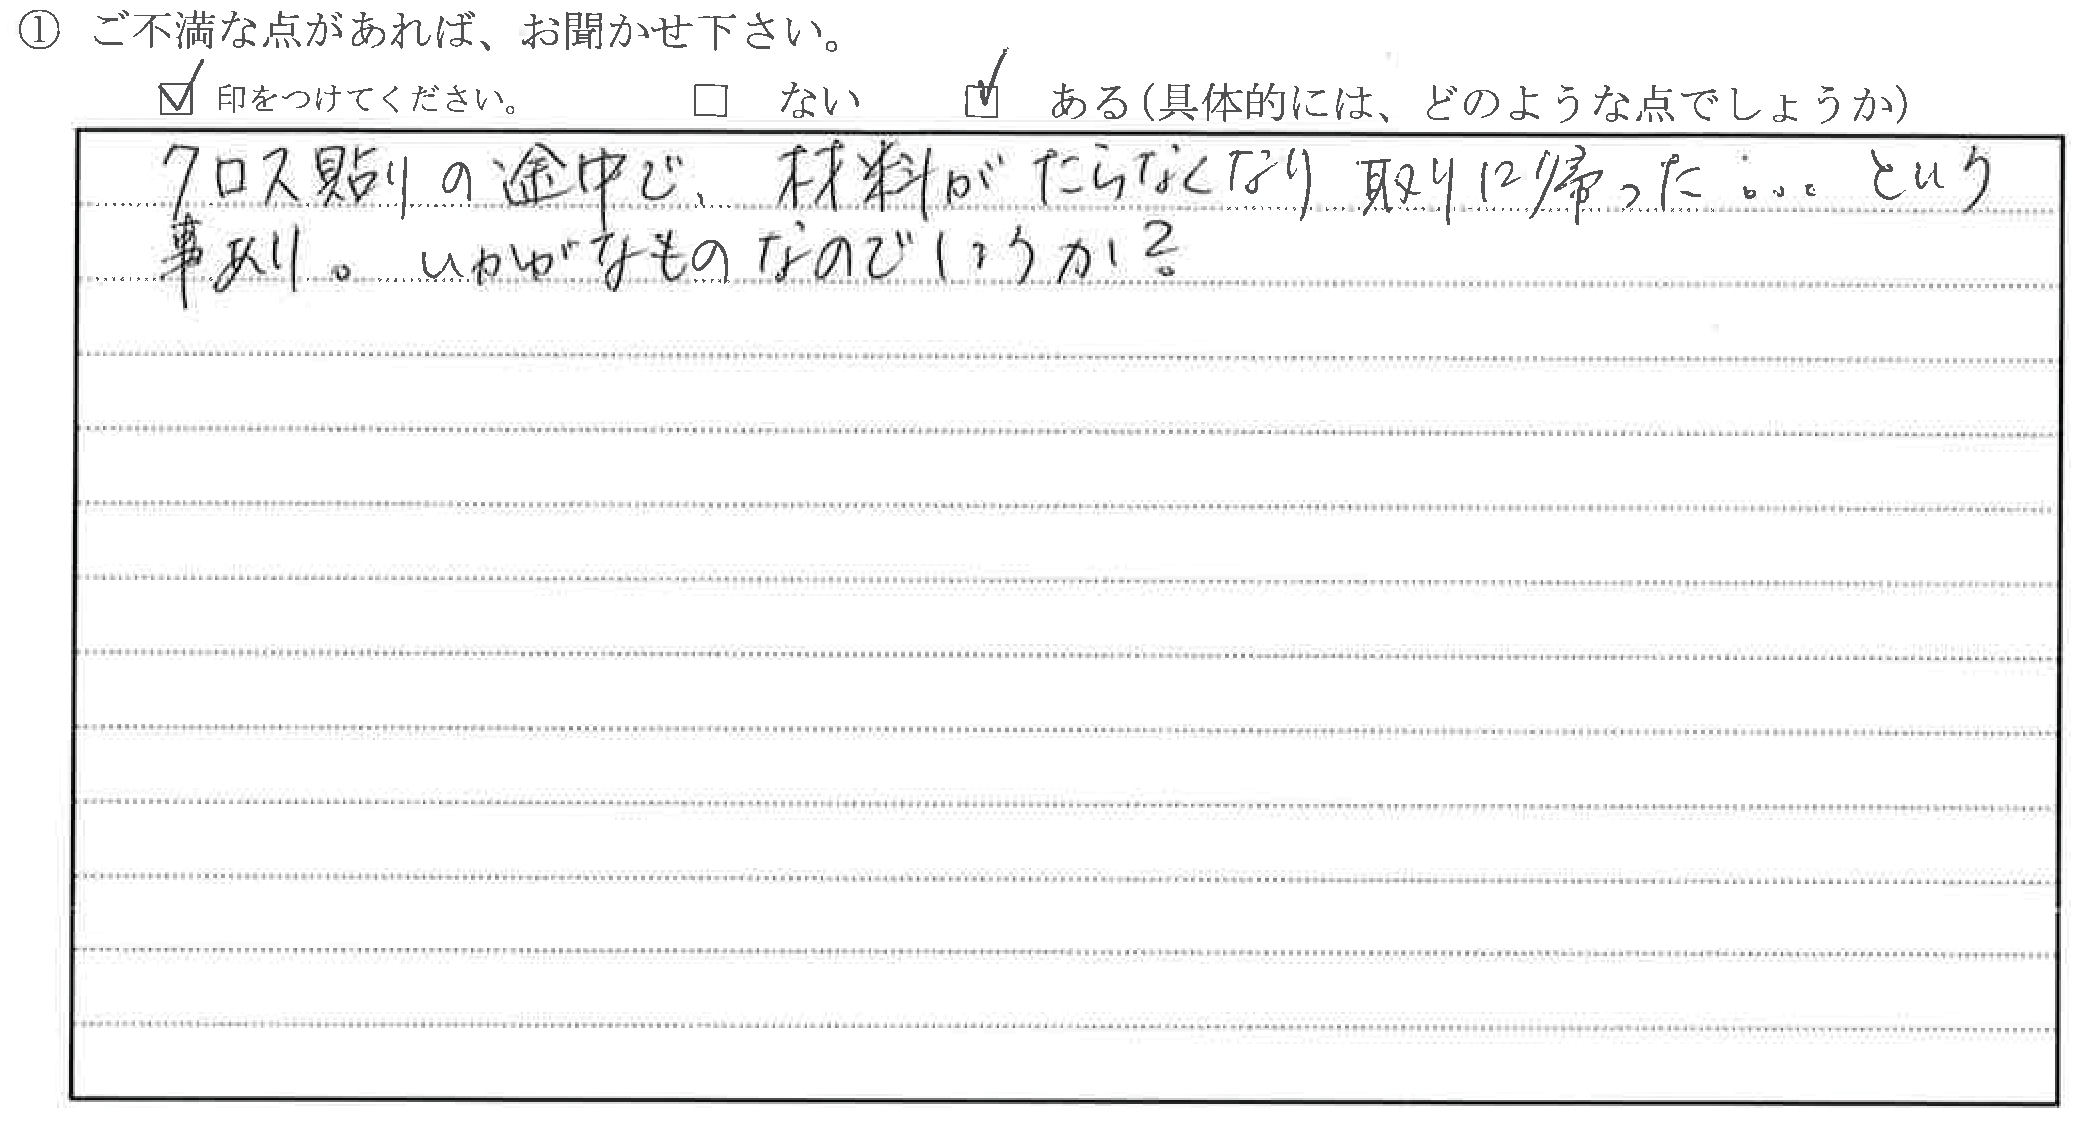 ① ご不満な点があれば、お聞かせ下さい。
☑ 印をつけてください。 □ ない ☑ ある(具体的には、どのような点でしょうか)
クロス貼りの途中で、材料がたらなくなり取りに帰った・・・。という
事あり。いかがなものなのでしょうか?